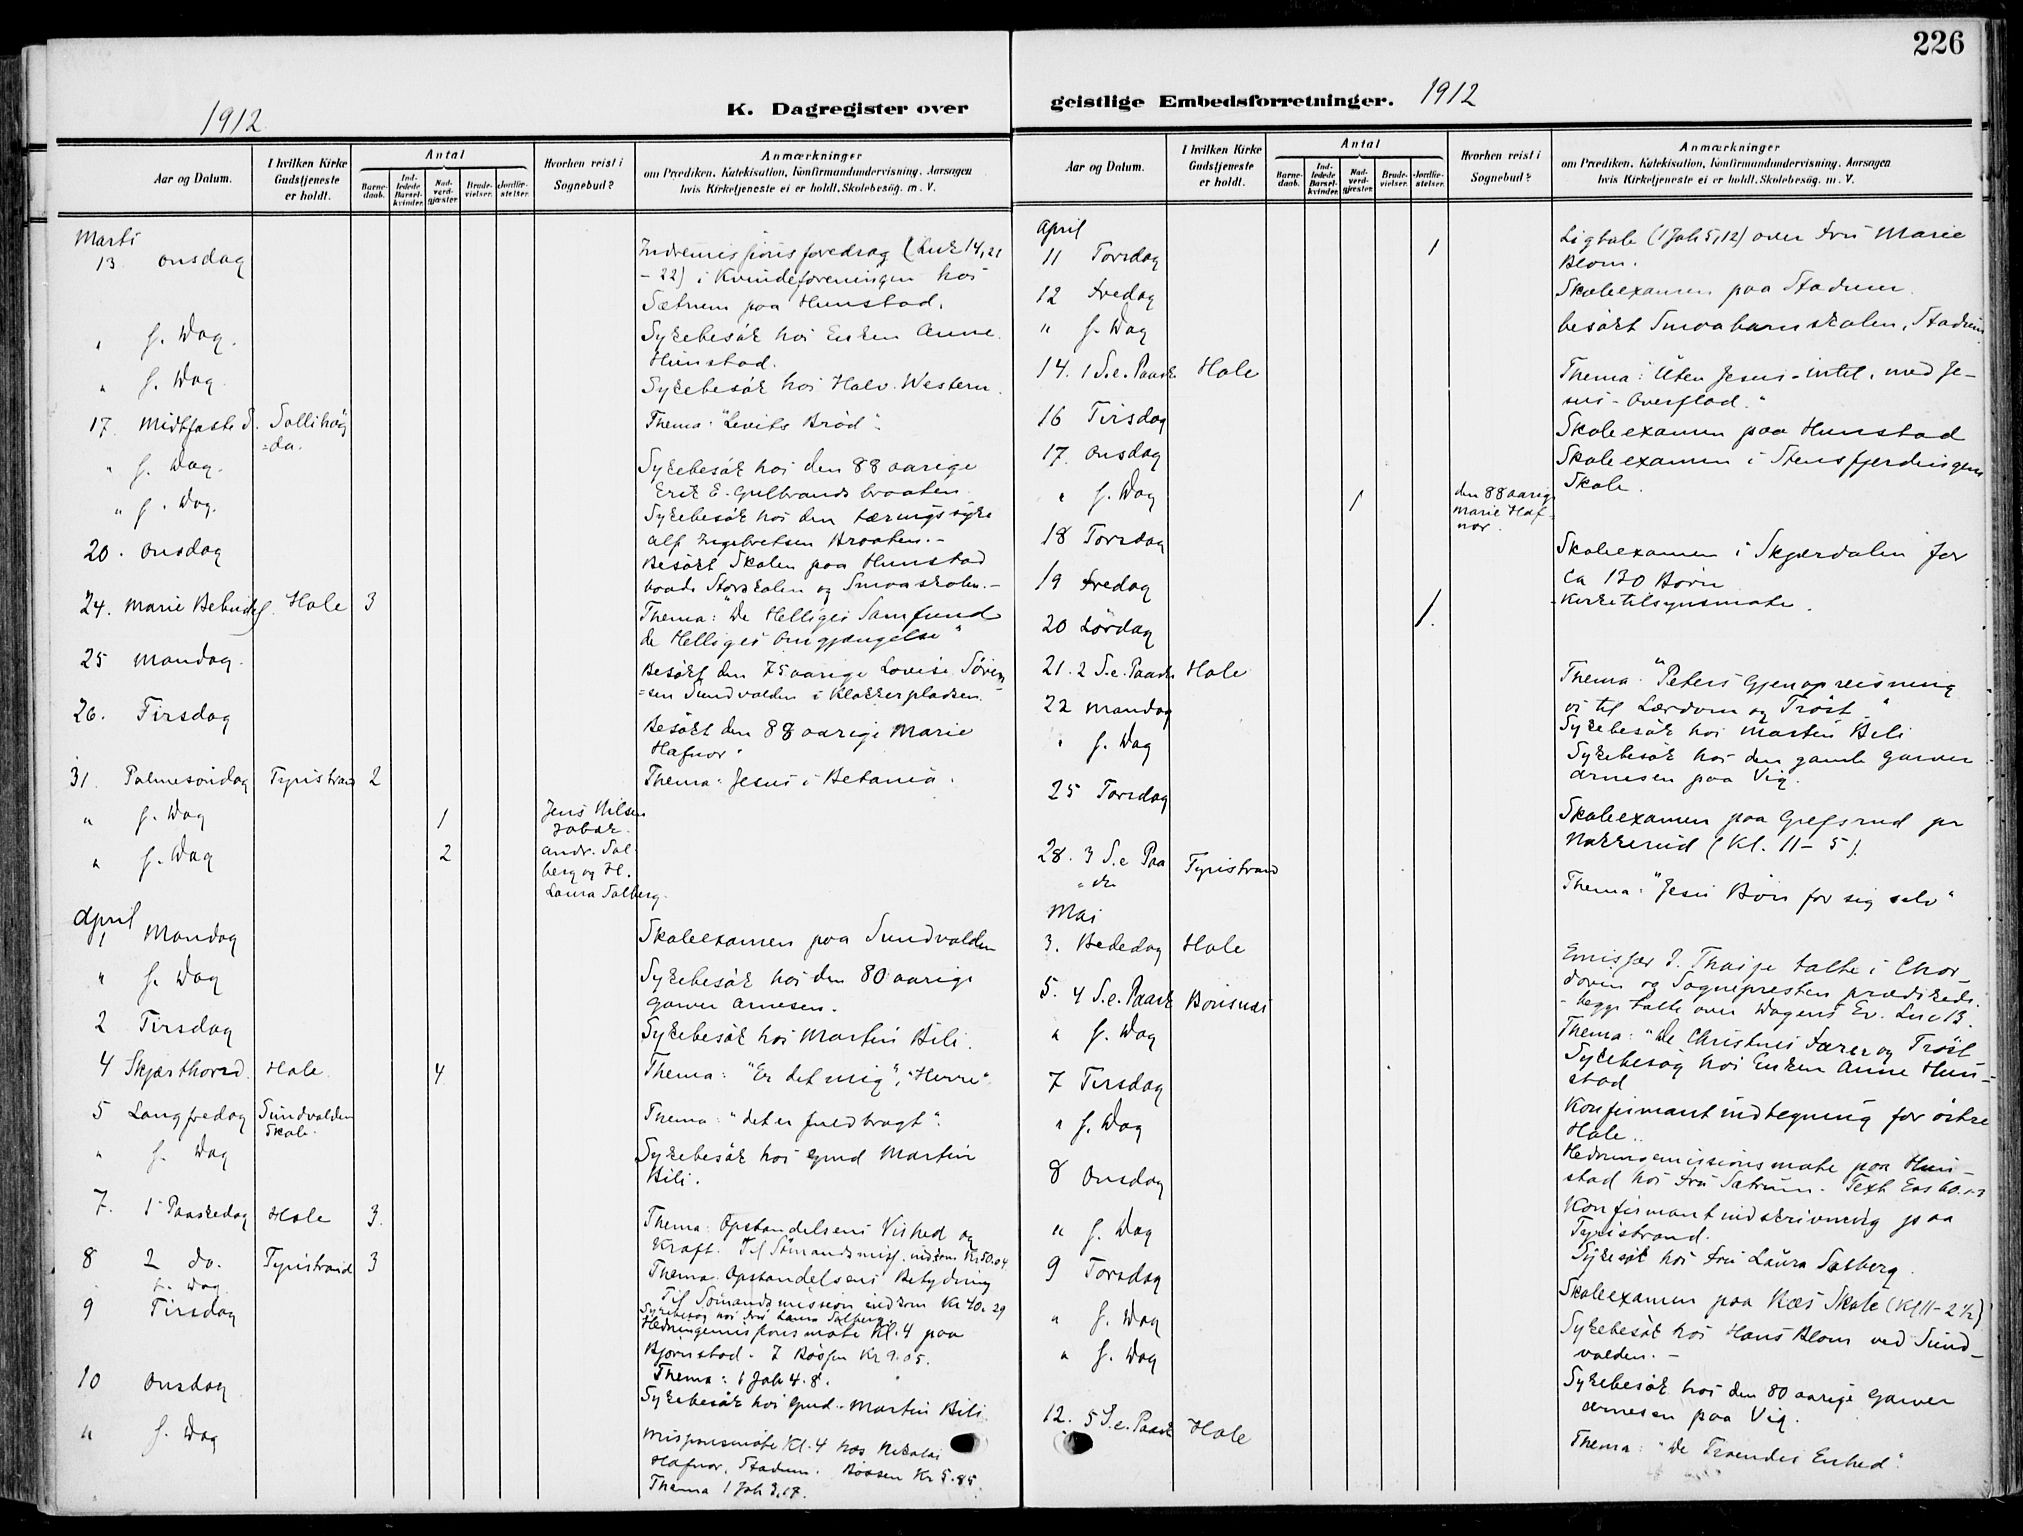 226
1912
K. Dagregister over
geistlige Embedsforretninger. 1912
Aar og Datum.
I hvilken Kirke Gudstjeneste er holdt.
Antal
Barnedaab.
Indledede Barselkvinder.
Nadverdgjæster.
Brudevielser.
Jordfæstelser.
Hvorhen reist i Sognebud?
Anmærkninger
om Prædiken, Katekisation, Konfirmandundervisning, Aarsagen
hvis Kirketjeneste ei er holdt, Skolebesøg. m. V.
Marts
13 onsdag
Indremissionsforedrag (Luk 14,21
- 22) i Kvindeforeningen hos
Sætrem paa Hunstad.
" s. Dag.
Sykebesøk hos Enken Anne
Hunstad.
" s. Dag.
Sykebesøk hos Halv. Western.
17. Midtfaste S. Sollihøg
=da.
Thema: "Livets Brød".
" s. Dag.
Sykebesøk hos den 88 aarige
Erik E. Gulbrandsbraaten.
" s. Dag.
Sykebesøk hos den tæringssyke
Alf Ingebretsen Braaten.-
20. onsdag
Besøkt Skolen paa Hunstad
baade Storskolen og Smaaskolen.-
24. Marie Bebudels. Hole 3
Thema: "De Helliges Samfund
de Helliges Omgjængelse"
25 Mandag.
Besøkt den 75 aarige Lovise Søren
=sen Sundvolden i Klokkerpladsen.-
26. Tirsdag
Besøkt den 88 aarige Marie
Hafnor.
31. Palmesøndag Tyristrand 2
Thema: Jesus i Betania.
" s. Dag 1 Jens Nilsen
" s. Dag 2 Andr. Sol-
berg og H.
Laura Solberg.
April
1 Mandag
Skoleexamen paa Sundvolden
" s. Dag
Sykebesøk hos den 80 aarige
Garver Arnesen.
2 Tirsdag
Sykebesøk hos Martin Bili.
4 Skjærthorsd. Hole. 4
Thema: "Er det mig", "Herre".
5 Langfredag Sundvolden
Skole.
Thema: "det er fuldbragt".
" s. Dag
Sykebesøk hos Gmd Martin
Bili.
7. 1 Paaskedag Hole 3.
Thema: Opstandelsens Vished og
Kraft. Til Sømandsmiss. indkom Kr 50.04
8 2 do. Tyristrand 3
Thema: Opstandelsens Betydning
Til Sømandsmission indkom Kr 40.29
s. Dag
Sykebesøg hos Fru Laura Solberg.
9 Tirsdag
Hedningemissionsmøte Kl. 4 paa
Bjørnstad. I Bøssen Kr 9.05.
Thema: 1 Joh 4.8.
10 onsdag
Sykebesøk hos Gmd. Martin Bili.
" s. Dag
Missionsmøte Kl. 4 hos Nikolai
Hafnor, Stadum. Bøssen Kr 5.85
Thema 1 Joh 3,17.
Aar og Datum.
I hvilken Kirke Gudstjeneste er holdt.
Antal
Barnedaab.
Indledede Barselkvinder.
Nadverdgjæster.
Brudevielser.
Jordfæstelser.
Hvorhen reist i Sognebud?
Anmærkninger
om Prædiken, Katekisation, Konfirmandundervisning, Aarsagen
hvis Kirketjeneste ei er holdt, Skolebesøg. m. V.
April
11 Torsdag 1
Ligtale (1 Joh 5,12) over Fru Marie
Blom.
12 Fredag
Skoleexamen paa Stadum.
" s. Dag
besøkt Smaabarnskolen, Stadum
14. 1 S.e. Paask Hole
Thema: Uten Jesus - intet, med Je-
sus - Overflod."
16 Tirsdag
Skoleexamen paa Hunstad
17. onsdag
Skoleexamen i Stensfjerdingens
Skole.
" s. Dag 1 den 88 aarige
Marie Haf-
nor.
18 Torsdag
Skoleexamen i Skjærdalen for
ca 130 Børn
19 Fredag
Kirketilsynsmøte.
20 Lørdag 1.
21. 2 S.e. Paaske Hole
Thema: "Peters Gjenopreisning
os til Lærdom og Trøst."
22 Mandag
Sykebesøk hos Martin Bili
" s. Dag
Sykebesøk hos den gamle Garver
Arnesen paa Vig.
25 Torsdag
Skoleexamen paa Gregsrud pr
Nakkerud (Kl. 11-5).
28. 3 S.e Paa
"ske Tyristrand
Thema: "Jesu Bøn for sig selv"
Mai
3. Bededag Hole
Emissær J. talte i Chor-
døren og Sognepresten prædikede.
- begge talte over Dagens Ev. Luc 13.
5. 4 S.e. Paask Bønsnæs
Thema: "De Christnes Farer og Trøst
" s. Dag
Sykebesøg hos Enken Anne Hun-
stad
7 Tirsdag
Konfirmantindtegning for østre
Hole.
" s. Dag
Hedningemissionsmøte paa Hun-
stad hos Fru Sætrum. Text Eas 60.1-3
8 Onsdag
Konfirmantindskrivning paa
Tyristrand.
" s. Dag
Sykebesøk hos Fru Laura Solberg.
9 Torsdag
Skoleexamen paa Røs Skole (Kl 11-2½)
" s. Dag
Sykebesøk hos Hans Blom ved Sund-
volden. -
" s. Dag
Sykebesøk hos den 80 aarige Garver
Arnesen paa Vig.
12. 5 S.e. Paask Hole
Thema: "De Troendes Enhed".